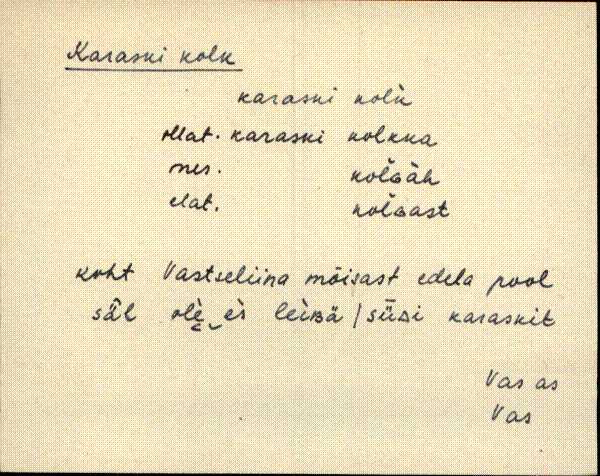 Karaski kolk
karaski kolk
illat. karaski kolkka
ines. kolɢah
elat. kolɢast
koht Vastseliina mõisast edela pool
säl olè es leiʙä / süüsi karaskit
Vas as
Vas